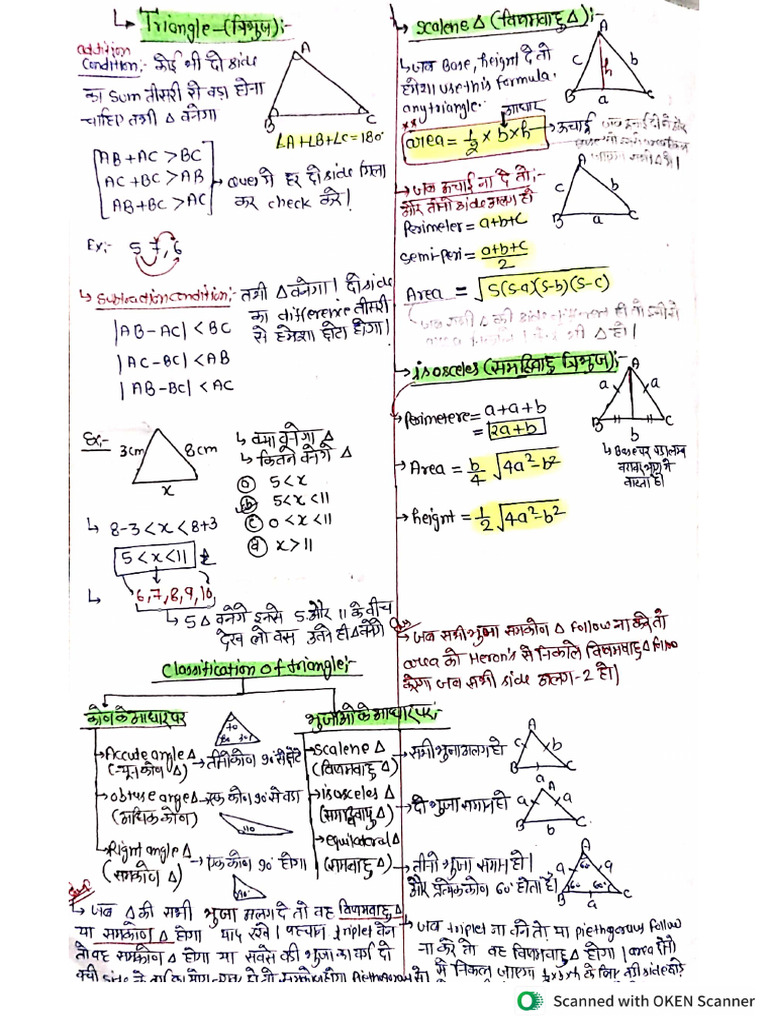 ↳ Triangle-(त्रिभुज):-
addition
condition:- कोई भी दो side
का sum तीसरी से बड़ा होना
चाहिए तभी Δ बनेगा
A
B
C
∠A+∠B+∠C=180°
AB+AC >BC
AC+BC >AB
AB+BC >AC
→ Ques में हर दो side मिला
कर check करे।
Ex:- 5, 7, 6
↳ Subtraction condition:- तभी Δ बनेगा। दो side
का difference तीसरी
से हमेशा छोटा होगा।
|AB-AC| <BC
|AC-BC| <AB
|AB-BC| <AC
Ex:-
3cm
8cm
x
↳ क्या बनेगा Δ
↳ कितने बनेंगे Δ
ⓐ 5<x
ⓑ 5<x<11
ⓒ 0<x<11
ⓓ x>11
↳ 8-3<x<8+3
5<x<11
↳ 6,7,8,9,10,
↳ 5Δ बनेंगे इनसे 5 और 11 के बीच
देख लो बस उतने ही Δ बनेंगे
Classification of triangle:-
कोण के आधार पर
→ Accute angle Δ
(न्यूनकोण Δ)
→ तीनों कोण 90° से छोटे
70
→ obtuse arge Δ
(अधिक कोण)
→ एक कोण 90° से बड़ा
110
→ Right angle Δ
(समकोण Δ)
→ एक कोण 90° होगा
90°
भुजाओं के आधार पर:
→ Scalene Δ
(विषमबाहु Δ)
→ सभी भुजा अलग हो
A
B
C
c
b
a
→ isosceles Δ
→ दो भुजा समान हो
A
B
C
a
a
b
→ equilateral Δ
(समबाहु Δ)
→ तीनों भुजा समान हो।
और प्रत्येक कोण 60° होता है।
A
B
C
a
a
a
60°
60°
60°
↳ जब Δ की सभी भुजा अलग दे तो वह विषमबाहु Δ
या समकोण Δ होगा याद रखे। पहचान triplet बने
तो वह समकोण Δ होगा या सबसे बड़ी भुजा का वर्ग दो
→ जब triplet ना बने तो या piethgorus follow
ना करे तो वह विषमबाहु Δ होगा। area ऐसे
में निकल जाएगा ½xbxh के लिए
→ Scalene Δ (विषमबाहु Δ):-
→ जब Base, height दे तो
हमेशा use this formula.
any triangle.
A
B
C
c
b
h
a
आधार
**
area = 1/2 × b × h
→ ऊंचाई
→ जब ऊचाई ना दे तो:-
और तीनों side अलग हो
A
B
C
c
b
a
Perimeter = a+b+c
Semi-Peri = a+b+c/2
Area = √S(S-a)(S-b)(S-c)
→ isosceles (समद्विबाहु त्रिभुज):-
A
B
C
a
a
b
→ Perimetere = a+a+b
= 2a+b
↳ Base पर डाला लम्ब
→ Area = b/4 √4a²-b²
→ height = 1/2 √4a²-b²
→ जब सभी भुजा समकोण Δ follow ना करे तो
area को Heron's से निकाले विषमबाहु Δ follow
करेगा जब सभी side अलग-2 हो।
Scanned with OKEN Scanner